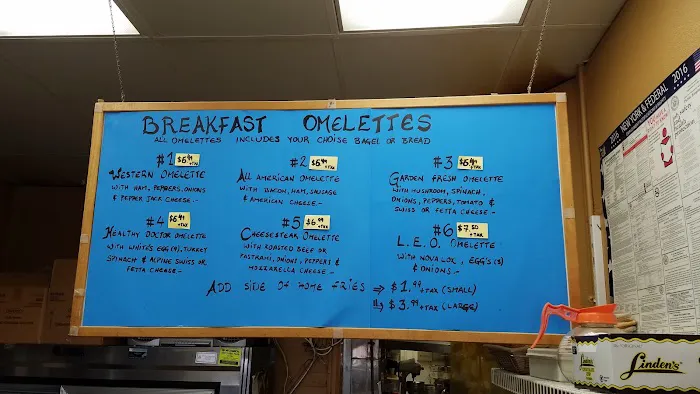 BREAKFAST OMELETTES
ALL OMELETTES INCLUDES YOUR CHOISE BAGEL OR BREAD
#1 $6.49 +TAX
WESTERN OMELETTE
WITH HAM, PEPPERS, ONIONS
& PEPPER JACK CHEESE.-
#2 $6.49 +TAX
ALL AMERICAN OMELETTE
WITH BACON, HAM, SAUSAGE
& AMERICAN CHEESE.-
#3 $6.49 +TAX
GARDEN FRESH OMELETTE
WITH MUSHROOM, SPINACH,
ONIONS, PEPPERS, TOMATO &
SWISS OR FETTA CHEESE.-
#4 $6.49 +TAX
HEALTHY DOCTOR OMELETTE
WITH WHITE'S EGG (4), TURKEY
SPINACH & ALPINE SWISS OR
FETTA CHEESE.-
#5 $6.99 +TAX
CHEESESTEAK OMELETTE
WITH ROASTED BEEF OR
PASTRAMI, ONIONS, PEPPERS &
MOZZARELLA CHEESE.-
#6 $7.50 +TAX
L.E.O. OMELETTE
WITH NOVA LOX, EGG'S (3)
& ONIONS.-
ADD SIDE OF HOME FRIES ⇒ $1.99 +TAX (SMALL)
⇒ $3.99 +TAX (LARGE)
2016 NEW YORK & FEDERAL 2016
Linden's